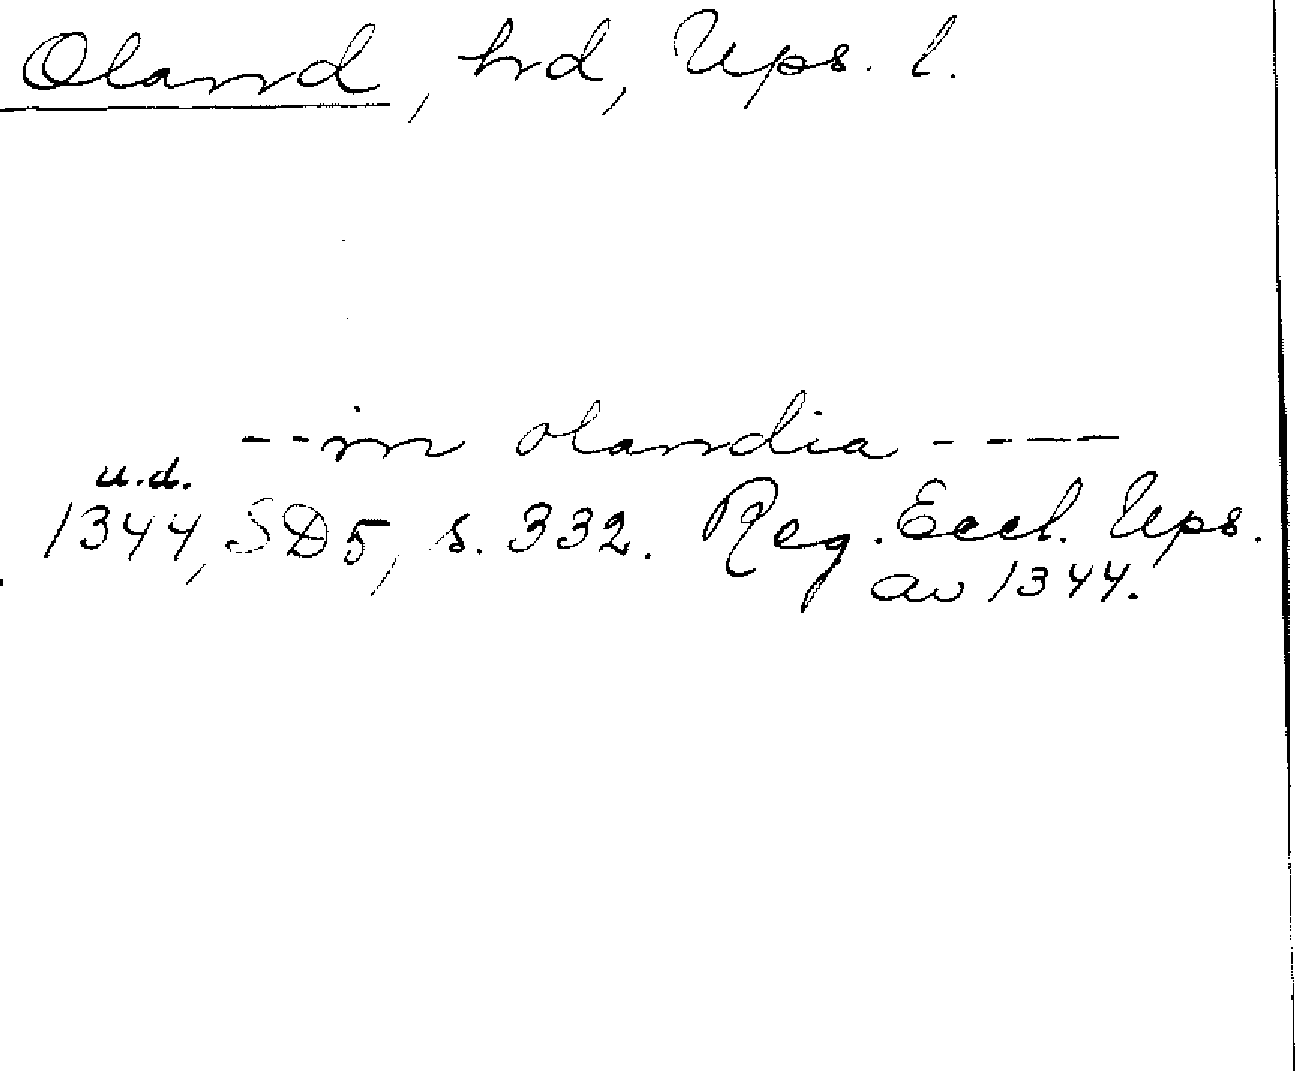 Oland, hrd, Ups. l.
--in olandia----
u.d.
1344, SD5, s. 332. Reg. Eccl. Ups.
av 1344.